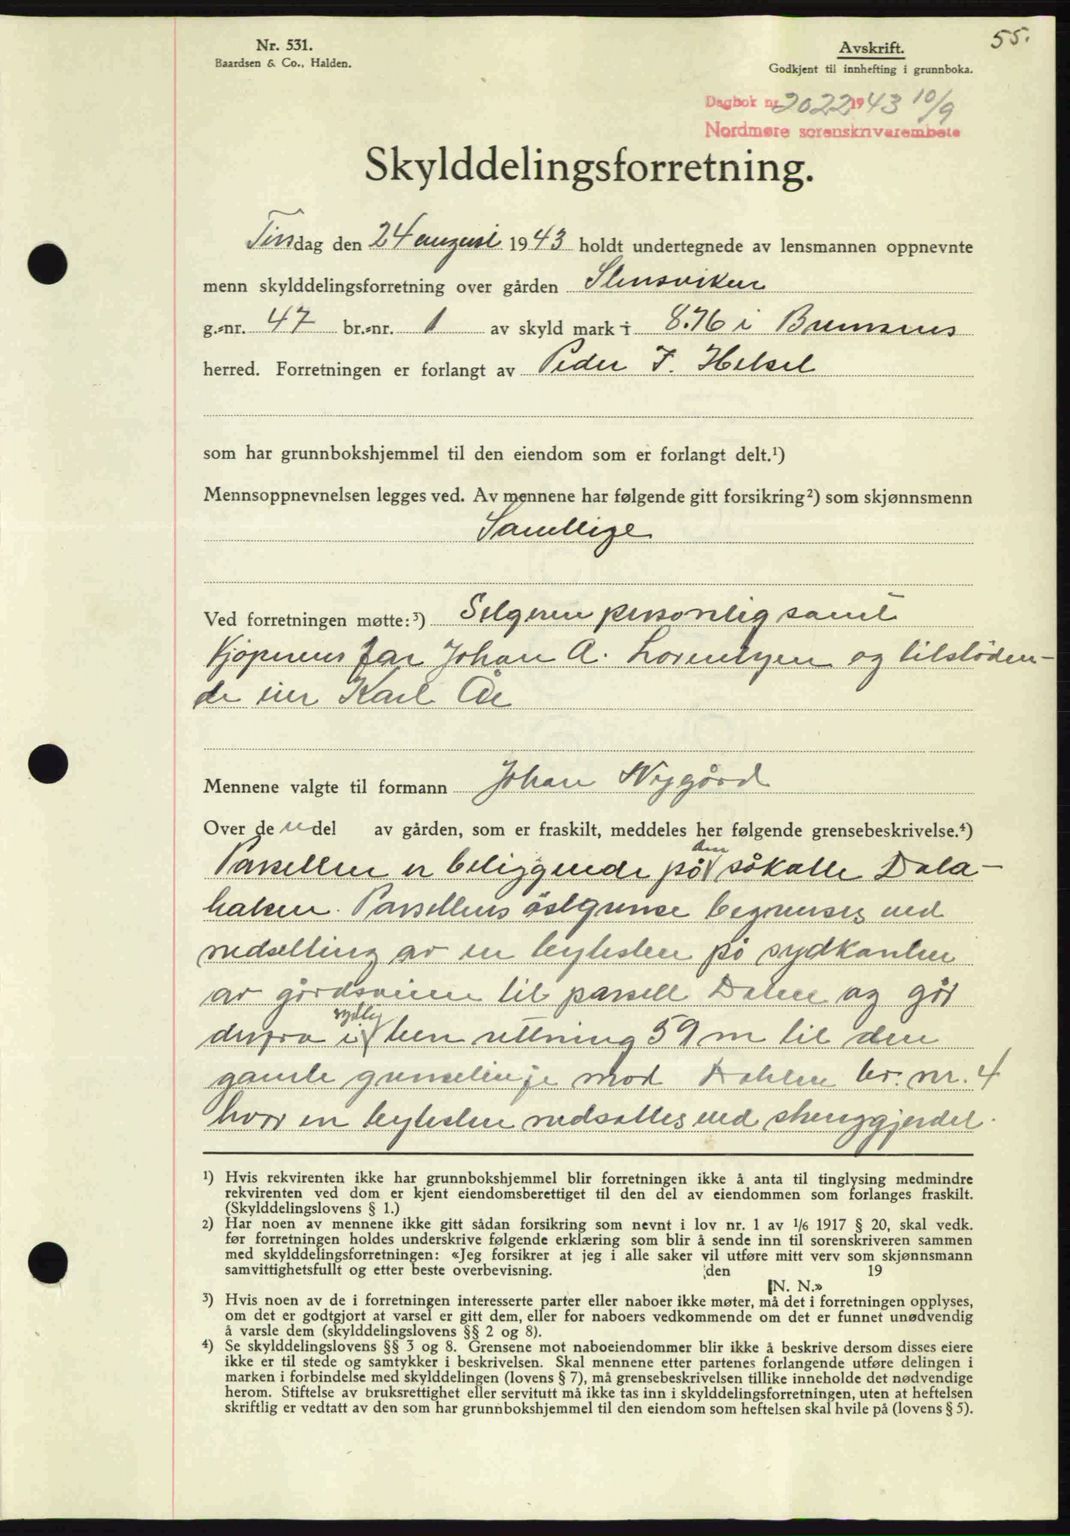 55.
Nr. 531.
Baardsen & Co., Halden.
Avskrift.
Godkjent til innhefting i grunnboka.
Dagbok nr. 2022 1943 10/9
Nordmøre sorenskriverembete
Skylddelingsforretning.
Tirsdag den 24 august 1943 holdt undertegnede av lensmannen oppnevnte
menn skylddelingsforretning over gården Stensviken
g.-nr. 47 br.-nr. 1 av skyld mark 8.76 i Bremsnes
herred. Forretningen er forlangt av Peder F.
som har grunnbokshjemmel til den eiendom som er forlangt delt.¹)
Mennsoppnevnelsen legges ved. Av mennene har følgende gitt forsikring²) som skjønnsmenn
Samtlige
Ved forretningen møtte:³) Selgeren personlig samt
Kjøperens far Johan A. Lorentzen og tilstöden-
de eier Karl Öie
Mennene valgte til formann Johan Nygård
Over de n del av gården, som er fraskilt, meddeles her følgende grensebeskrivelse.⁴)
Parsellen er beliggende på den såkalte Dala-
halsen. Parsellens östgrense begrenses ved
nedsetting av en bytesten på sydkanten
av gårdsveien til parsell Dalen og går
derfra i sydlig retning 59 m til den
gamle grenselinje mod Dahlen br. nr. 4
hvor en bytesten nedsattes ved stenggjerdet.
¹) Hvis rekvirenten ikke har grunnbokshjemmel blir forretningen ikke å anta til tinglysing medmindre
rekvirenten ved dom er kjent eiendomsberettiget til den del av eiendommen som forlanges fraskilt.
(Skylddelingslovens § 1.)
²) Har noen av mennene ikke gitt sådan forsikring som nevnt i lov nr. 1 av 1/6 1917 § 20, skal vedk.
før forretningen holdes underskrive følgende erklæring som blir å sende inn til sorenskriveren sammen
med skylddelingsforretningen: «Jeg forsikrer at jeg i alle saker vil utføre mitt verv som skjønnsmann
samvittighetsfullt og etter beste overbevisning. den 19
N. N.»
³) Hvis noen av de i forretningen interesserte parter eller naboer ikke møter, må det i forretningen opplyses,
om det er godtgjort at varsel er gitt dem, eller for naboers vedkommende om det er funnet unødvendig
å varsle dem (skylddelingslovens §§ 2 og 8).
⁴) Se skylddelingslovens §§ 3 og 8. Grensene mot naboeiendommer blir ikke å beskrive dersom disses eiere
ikke er til stede og samtykker i beskrivelsen. Skal mennene etter partenes forlangende utføre delingen i
marken i forbindelse med skylddelingen (lovens § 7), må grensebeskrivelsen tillike inneholde det nødvendige
herom. Stiftelse av bruksrettighet eller servitutt må ikke tas inn i skylddelingsforretningen, uten at heftelsen
skriftlig er vedtatt av den som har grunnbokshjemmel til den eiendom som heftelsen skal hvile på (lovens § 5).